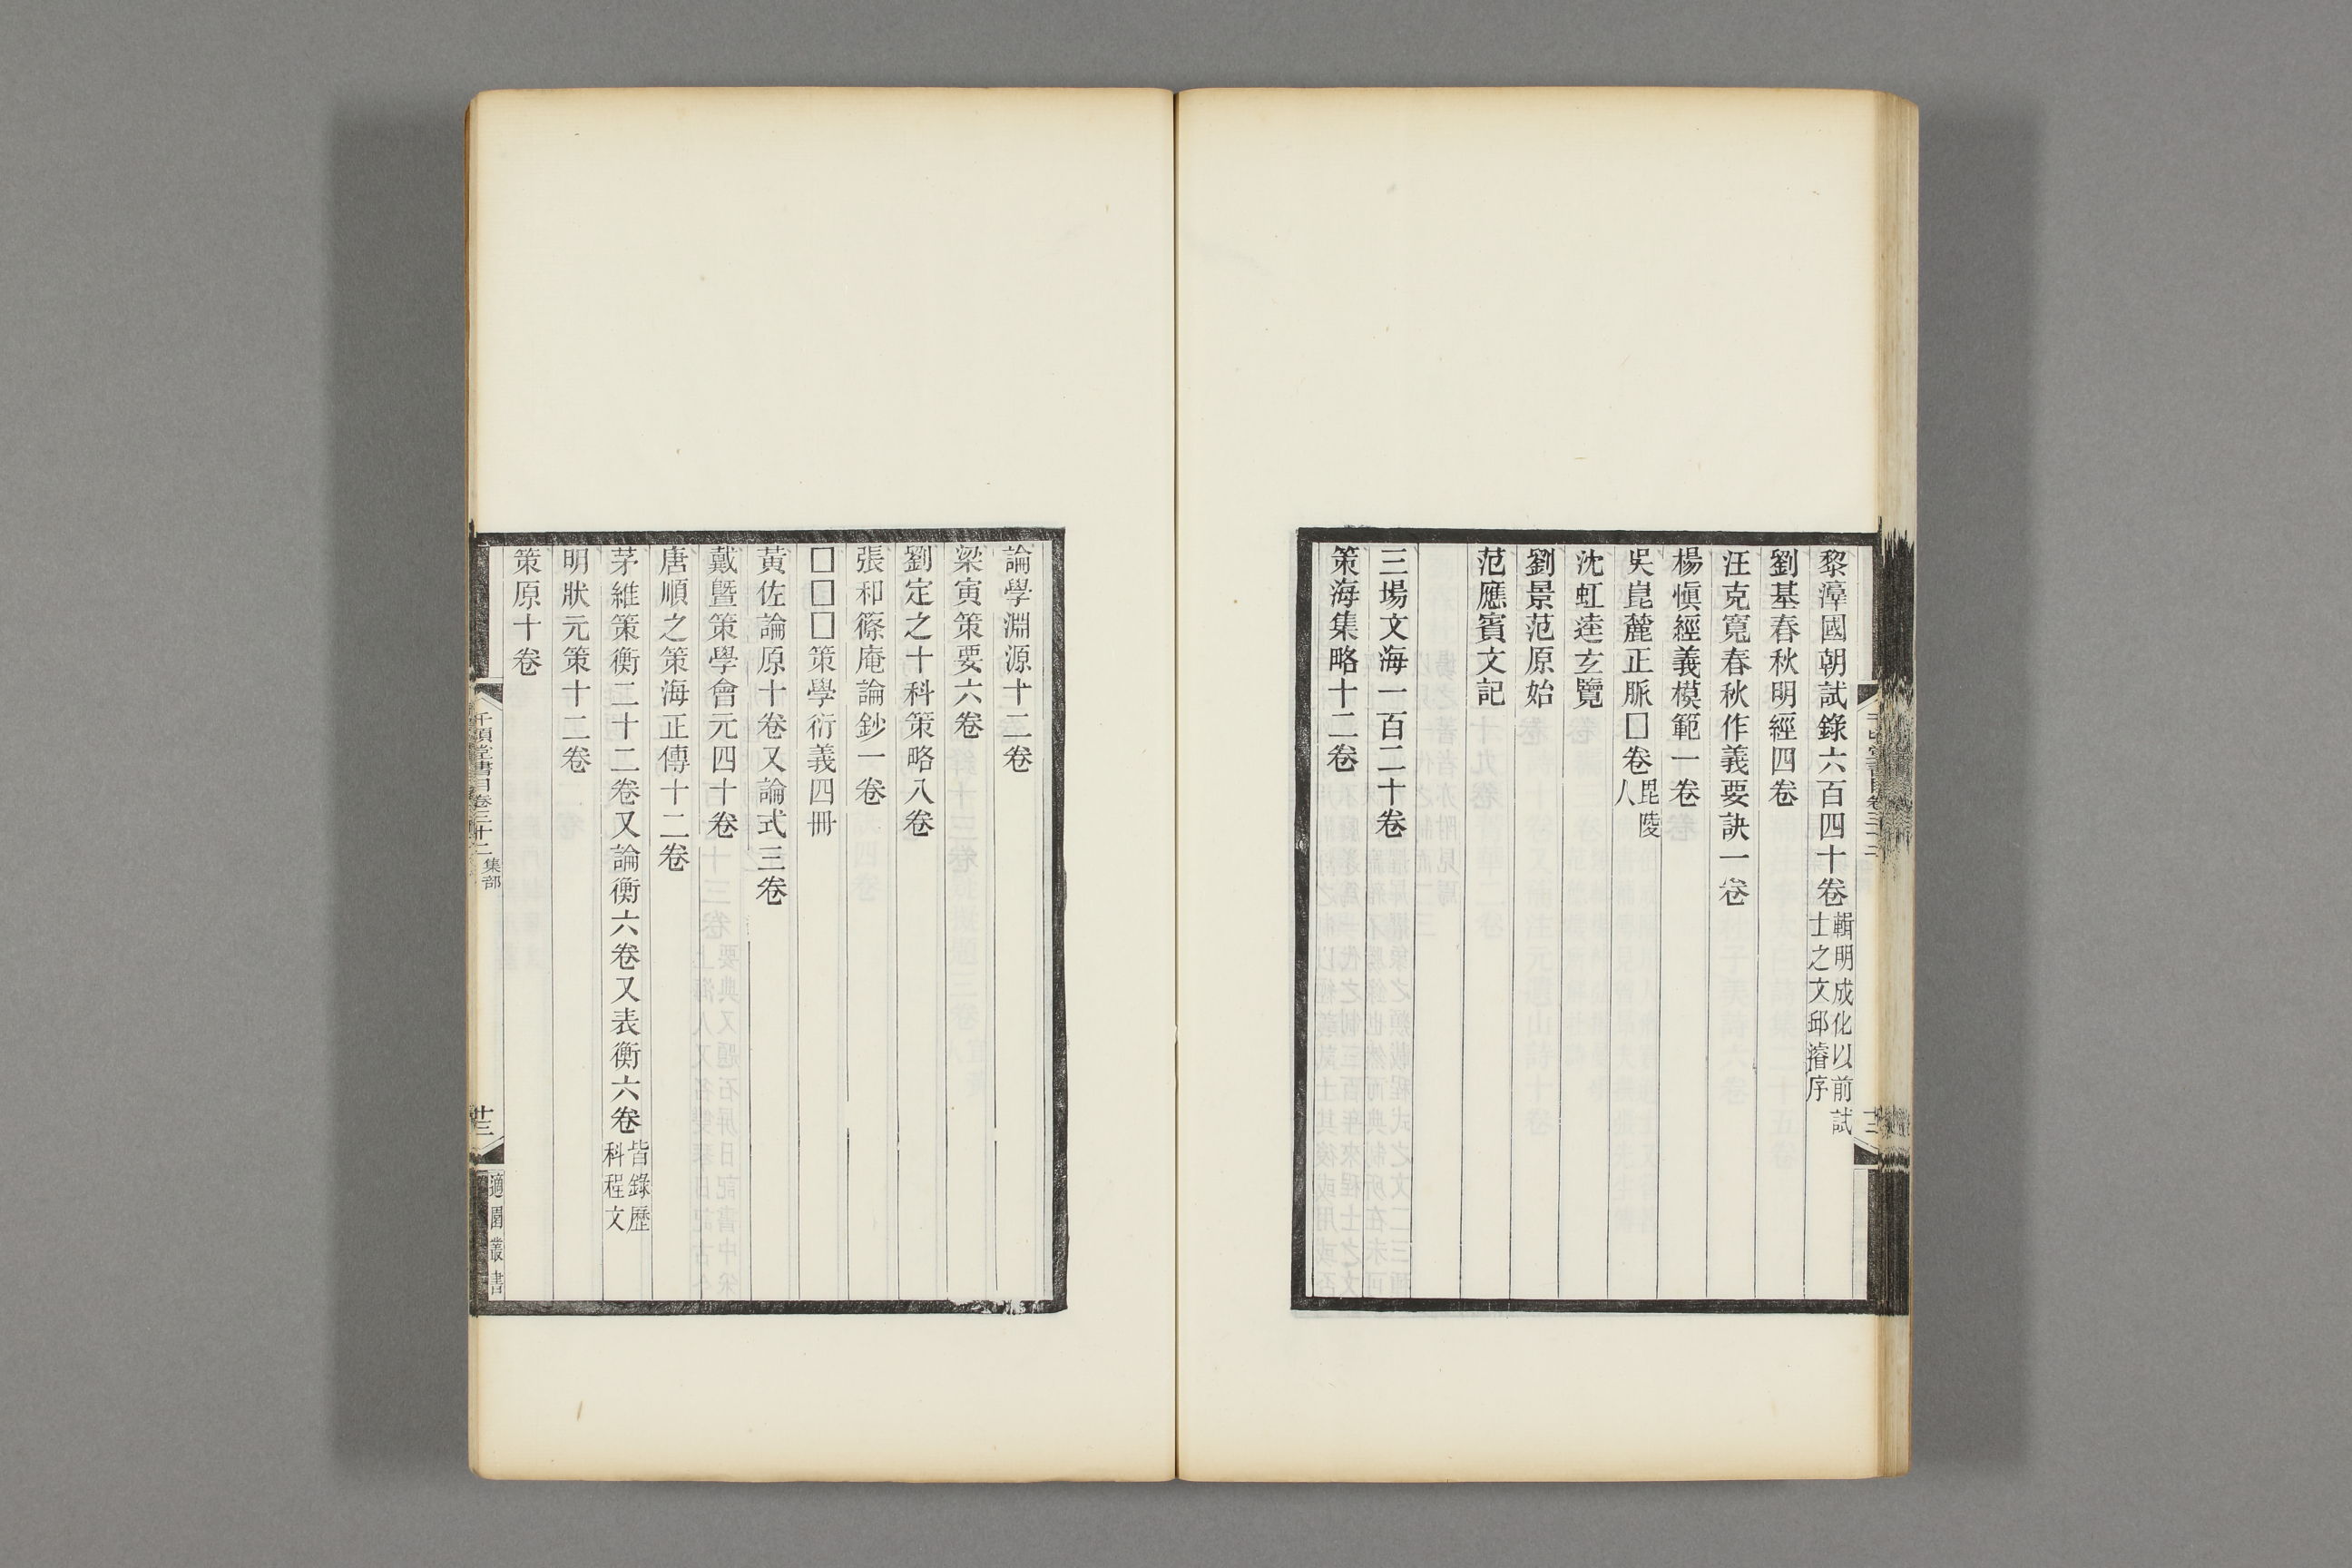 黎漳國朝試錄六百四十卷輯明成化以前試士之文邱濬序
劉基春秋明經四卷
汪克寬春秋作義要訣一卷
楊愼經義模範一卷
吳崑麓正脈□卷毘陵人
沈虹逵玄覽
劉景范原始
范應賓文記
三場文海一百二十卷
策海集略十二卷
論學淵源十二卷
梁寅策要六卷
劉定之十科策略八卷
張和篠庵論鈔一卷
□□□策學衍義四冊
黃佐論原十卷又論式三卷
戴曁策學會元四十卷
唐順之策海正傳十二卷
茅維策衡二十二卷又論衡六卷又表衡六卷皆錄歷科程文
明狀元策十二卷
策原十卷
千頃堂書目卷三十二 集部
十三
適園叢書